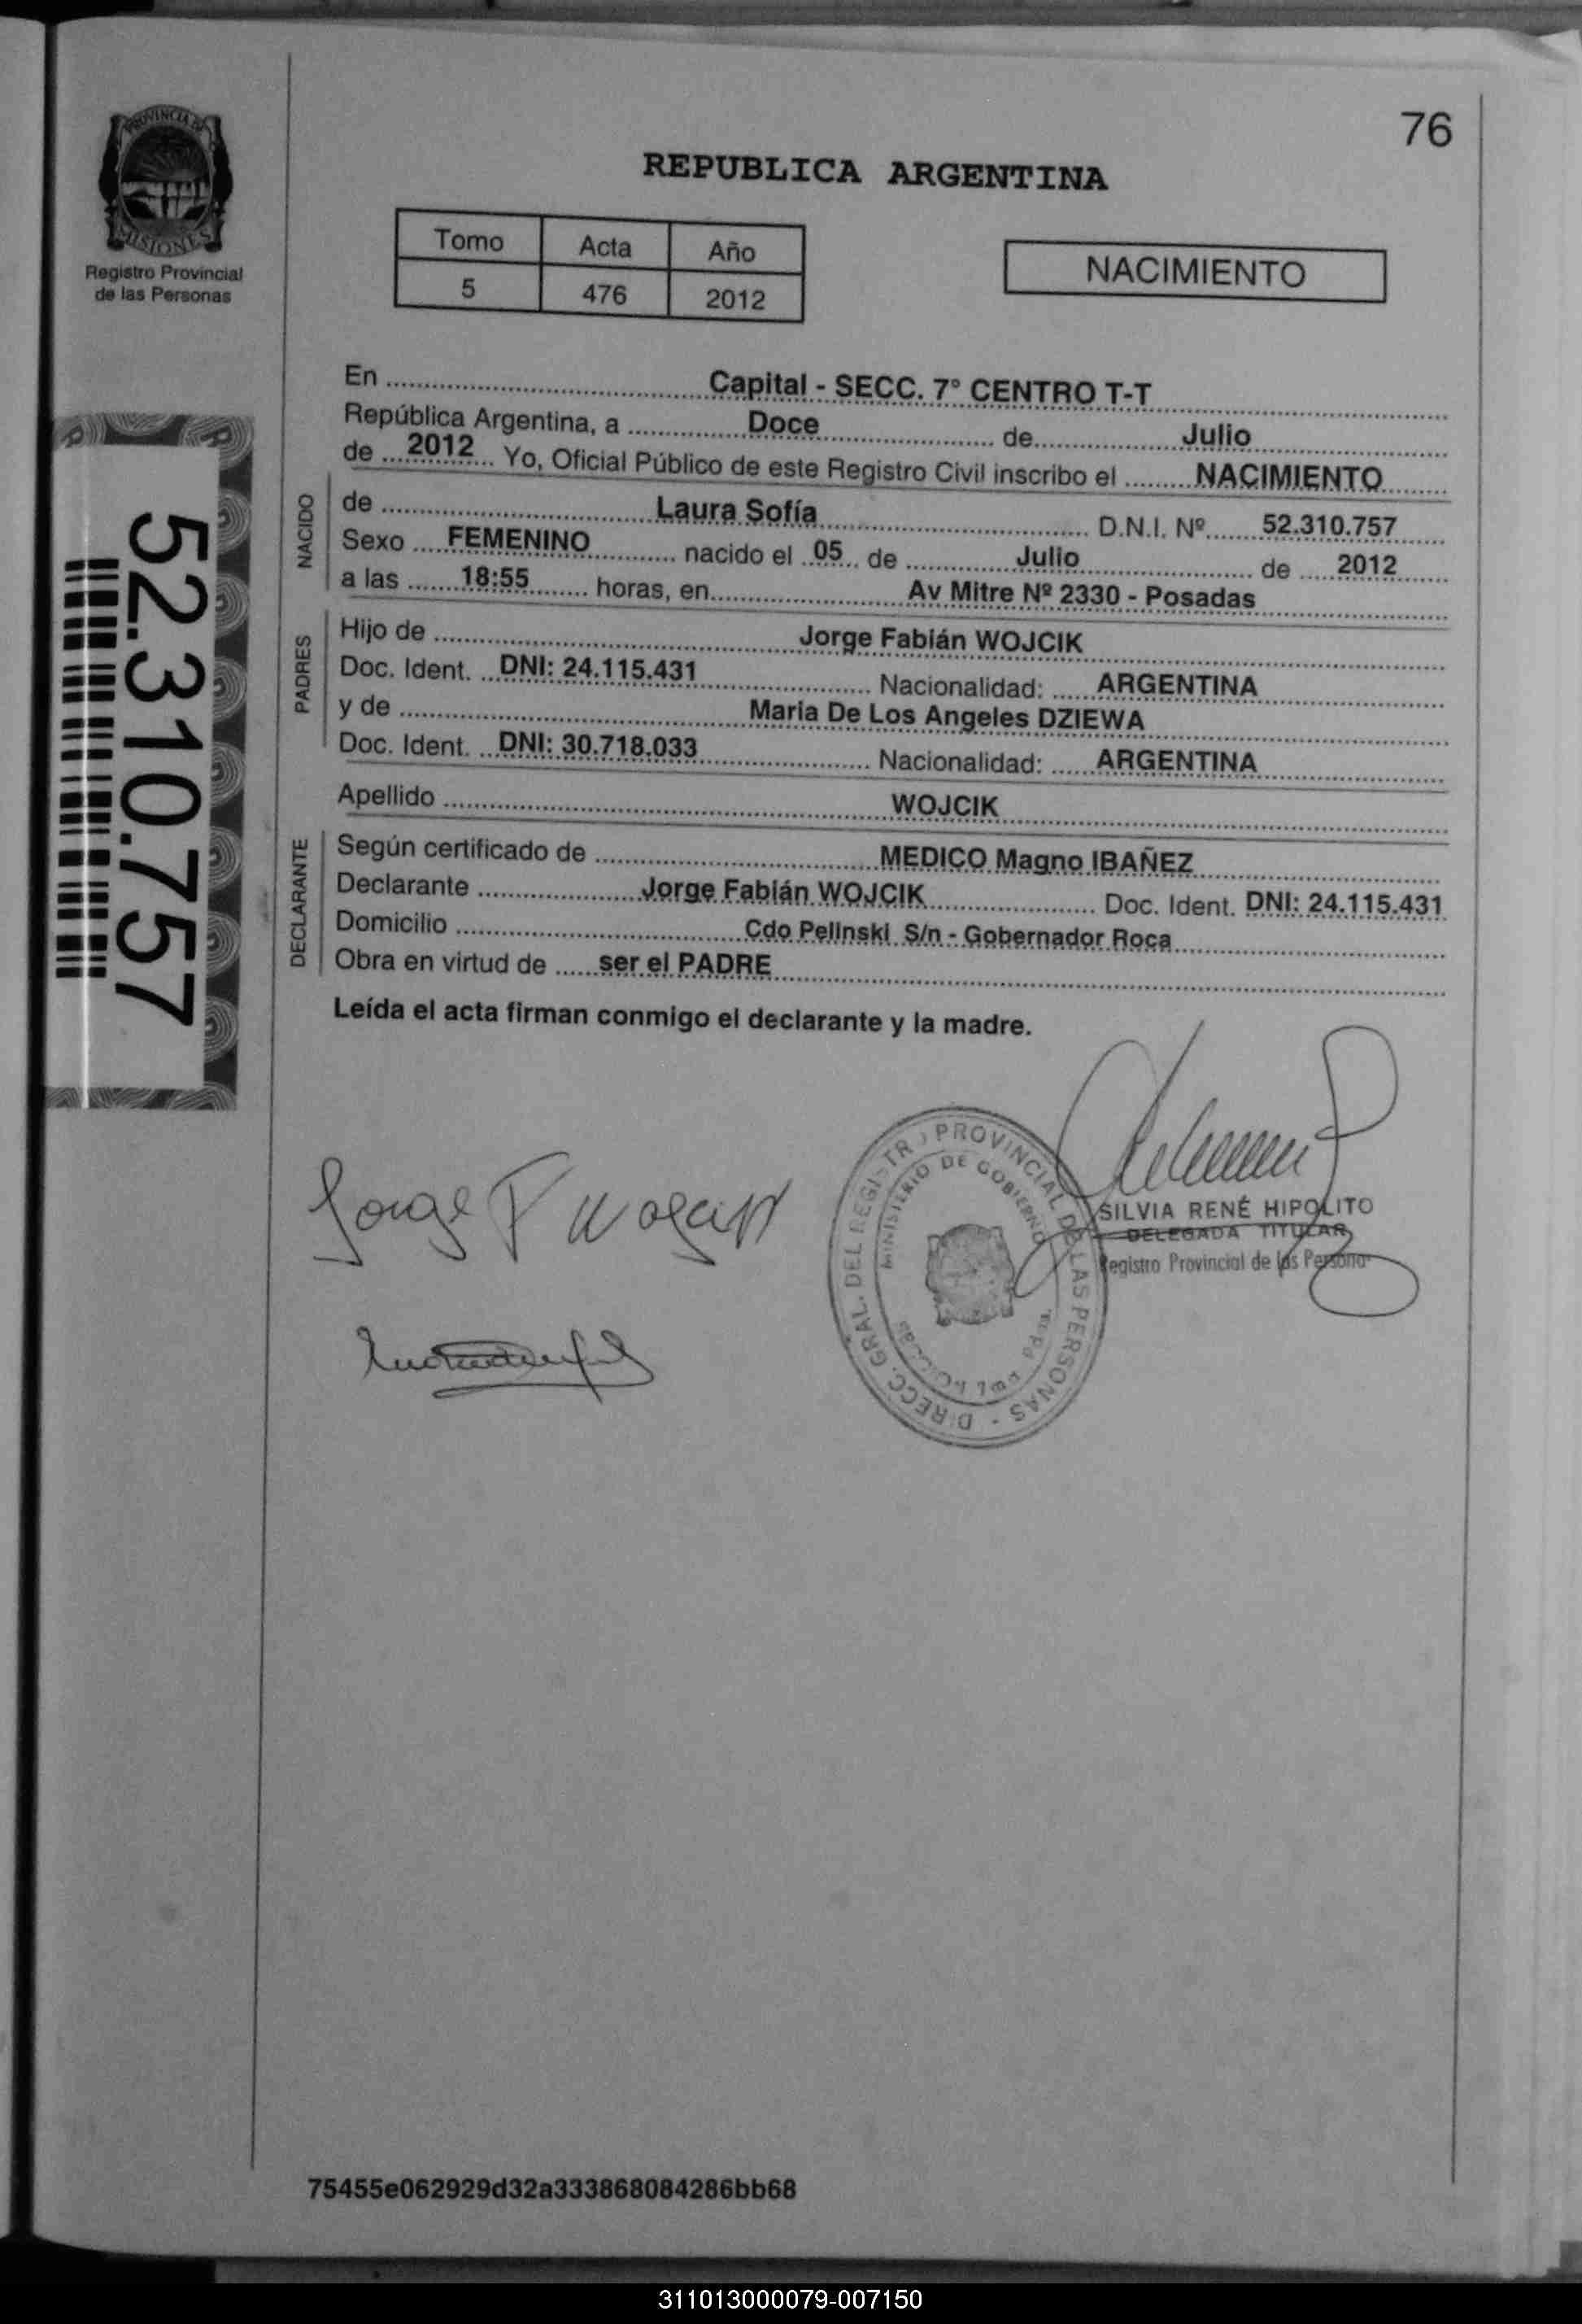 76
REPUBLICA ARGENTINA
PROVINCIA DE
MISIONES
Registro Provincial
de las Personas
Tomo Acta Año
5 476 2012
NACIMIENTO
En Capital - SECC. 7º CENTRO T-T
República Argentina, a Doce de Julio
de 2012 Yo, Oficial Público de este Registro Civil inscribo el NACIMIENTO
NACIDO
de Laura Sofía D.N.I. Nº 52.310.757
Sexo FEMENINO nacido el 05 de Julio de 2012
a las 18:55 horas, en Av Mitre Nº 2330 - Posadas
PADRES
Hijo de Jorge Fabián WOJCIK
Doc. Ident. DNI: 24.115.431 Nacionalidad: ARGENTINA
y de Maria De Los Angeles DZIEWA
Doc. Ident. DNI: 30.718.033 Nacionalidad: ARGENTINA
Apellido WOJCIK
DECLARANTE
Según certificado de MEDICO Magno IBAÑEZ
Declarante Jorge Fabián WOJCIK Doc. Ident. DNI: 24.115.431
Domicilio Cdo Pelinski S/n - Gobernador Roca
Obra en virtud de ser el PADRE
Leída el acta firman conmigo el declarante y la madre.
52.310.757
Jorge F
DIRECC. GRAL. DEL REGISTRO PROVINCIAL DE LAS PERSONAS
MINISTERIO DE GOBIERNO
SILVIA RENÉ HIPOLITO
DELEGADA TITULAR
Registro Provincial de las Personas
75455e062929d32a333868084286bb68
311013000079-007150